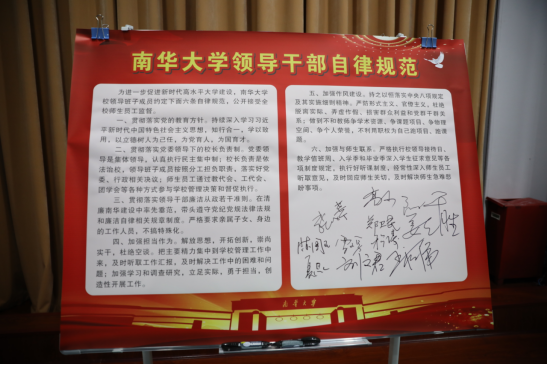 南华大学领导干部自律规范
为进一步促进新时代高水平大学建设，南华大学
校领导班子成员约定下面六条自律规范，公开接受全
校师生员工监督。
一、贯彻落实党的教育方针。持续深入学习习近
平新时代中国特色社会主义思想，知行合一，学以致
用，以立德树人为己任，为党育人，为国育才。
二、贯彻落实党委领导下的校长负责制。党委领
导是集体领导，认真执行民主集中制；校长负责是依
法治校，领导班子成员按照分工担负职责，落实好党
委、行政相关决议；师生员工通过教代会、工代会、
团学会等各种方式参与学校管理决策和督促执行。
三、贯彻落实领导干部廉洁从政若干准则。在清
廉南华建设中率先垂范，带头遵守党纪党规法律法规
和廉洁自律相关规章制度。严格要求亲属子女、身边
的工作人员，不搞特殊化。
四、加强担当作为。解放思想，开拓创新，崇尚实
干，杜绝空谈。把主要精力集中到学校管理工作中
来，及时听取工作汇报，及时解决工作中的困难和问
题；加强学习和调查研究，立足实际，勇于担当，创
造性开展工作。
五、加强作风建设。持之以恒落实中央八项规定
及其实施细则精神，严防形式主义、官僚主义，杜绝
脱离实际、弄虚作假、损害群众利益和党群干群关
系；做到不和教师争学术资源、争课题项目、争物理
空间、争个人荣誉，不利用职权为自己跑项目、跑课
题。
六、加强与师生联系。严格执行校领导接待日、
教学信箱周、入学季和毕业季深入学生征求意见等各
项制度，执行好听课制度，经常性深入师生员工
听取意见，及时回应师生关切，及时解决师生急难愁
盼事项。
南华大学